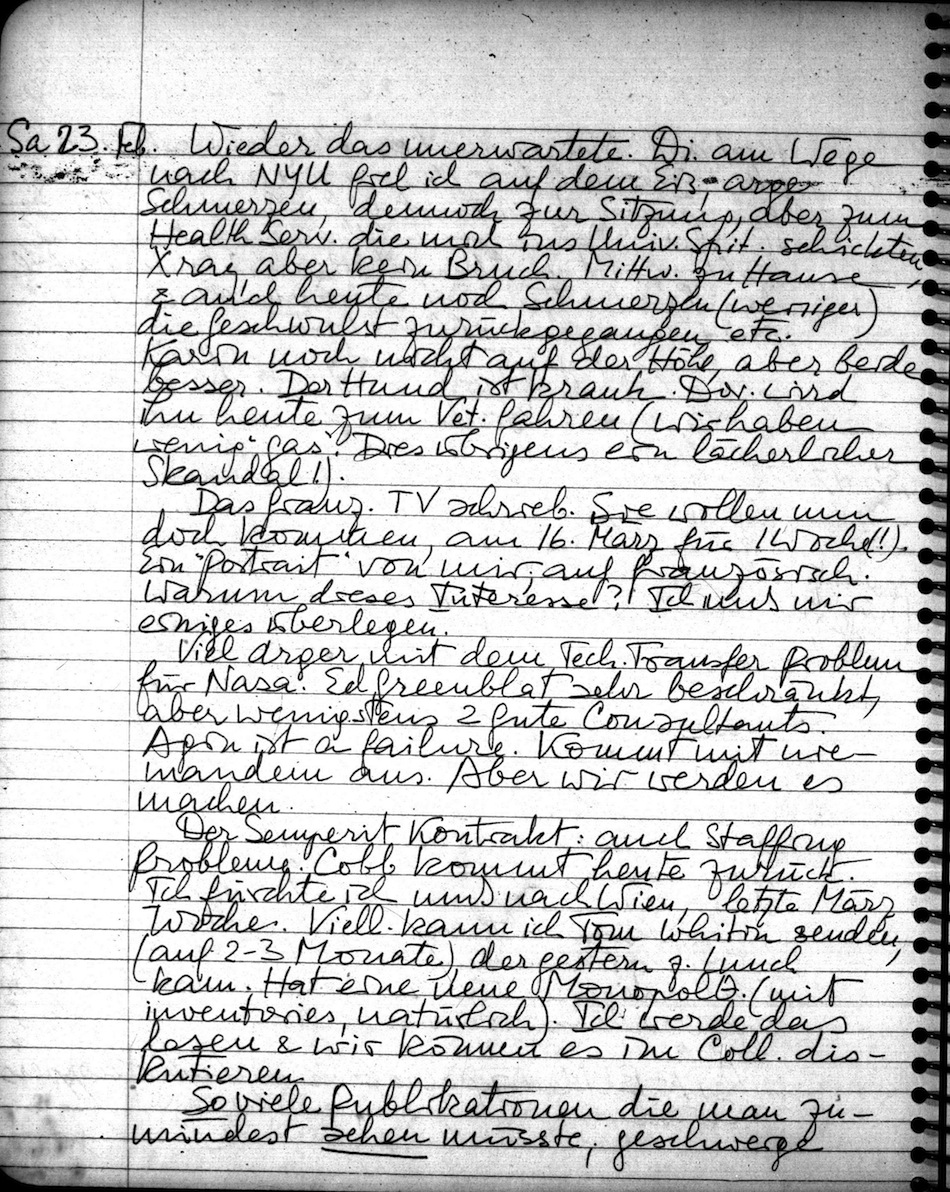 Sa 23. Feb. Wieder das unerwartete. Di. am Wege
nach NYU fiel ich auf dem Eis, arge
Schmerzen, dennoch zur Sitzung, aber zum
Health Serv. die mich ins Univ. Spit. schickten,
Xray aber kein Bruch. Mittw. zu Hause,
& auch heute noch Schmerzen (weniger)
die Geschwulst zurückgegangen, etc.
Karin noch nicht auf der Höhe, aber beide
besser. Der Hund ist krank. Dor. wird
ihn heute zum Vet. fahren (wir haben
wenig "gas". Dies übrigens ein lächerlicher
Skandal!).
Das franz. TV schrieb. Sie wollen nun
doch kommen, am 16. März für 1 Woche(!).
Ein "Portrait" von mir, auf französisch.
Warum dieses Interesse? Ich muss mir
einiges überlegen.
Viel ärger mit dem Tech. Transfer Problem
für Nasa. Ed Greenblat sehr beschränkt,
aber wenigstens 2 gute Consultants.
ist a failure. Kommt mit nie-
mandem aus. Aber wir werden es
machen.
Der Semperit Kontrakt: auch Staffing
Probleme. Cobb kommt heute zurück.
Ich fürchte ich muss nach Wien, letzte März
Woche. Viell. kann ich Tom Whitin senden,
(auf 2-3 Monate) der gestern z. Lunch
kam. Hat eine neue Monopolth. (mit
inventories, natürlich). Ich werde das
lesen & wir können es im Coll. dis-
kutieren
So viele Publikationen die man zu-
mindest sehen müsste, geschweige